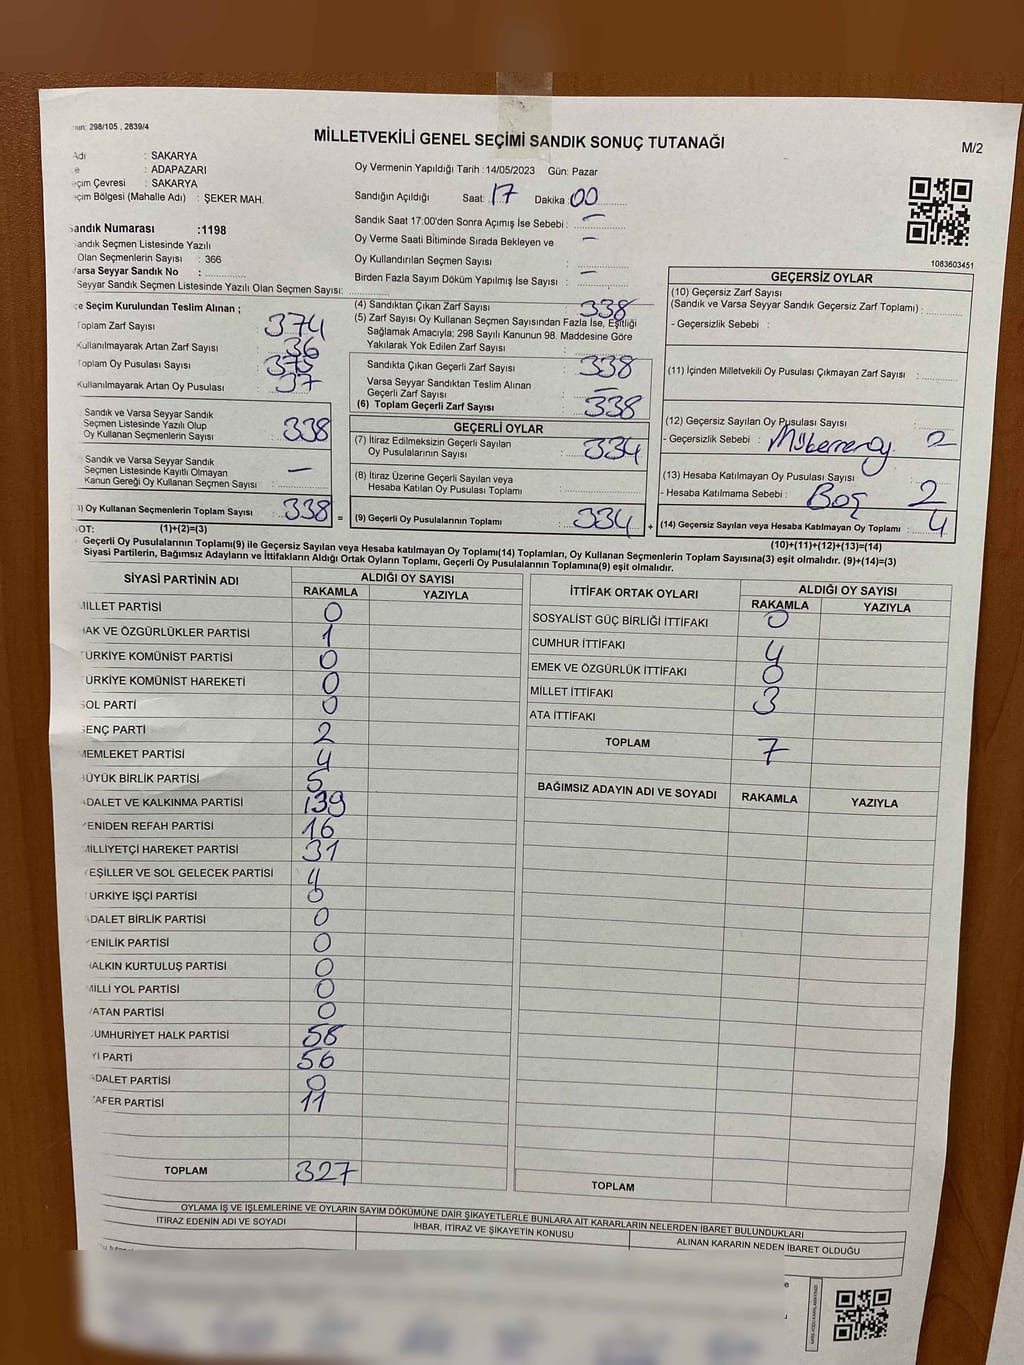 298/105 , 2839/4
MİLLETVEKİLİ GENEL SEÇİMİ SANDIK SONUÇ TUTANAĞI
M/2
Adı : SAKARYA
: ADAPAZARI
eçim Çevresi : SAKARYA
eçim Bölgesi (Mahalle Adı) : ŞEKER MAH.
Oy Vermenin Yapıldığı Tarih :14/05/2023 Gün: Pazar
Sandığın Açıldığı Saat: 17 Dakika : 00
Sandık Saat 17:00'den Sonra Açımış İse Sebebi : —
Oy Verme Saati Bitiminde Sırada Bekleyen ve —
Oy Kullandırılan Seçmen Sayısı :
Birden Fazla Sayım Döküm Yapılmış İse Sayısı : —
1083603451
andık Numarası :1198
andık Seçmen Listesinde Yazılı
Olan Seçmenlerin Sayısı : 366
Varsa Seyyar Sandık No :
Seyyar Sandık Seçmen Listesinde Yazılı Olan Seçmen Sayısı:
çe Seçim Kurulundan Teslim Alınan ;
oplam Zarf Sayısı : 374
Kullanılmayarak Artan Zarf Sayısı : 36
oplam Oy Pusulası Sayısı : 375
Kullanılmayarak Artan Oy Pusulası : 37
Sandık ve Varsa Seyyar Sandık
Seçmen Listesinde Yazılı Olup
Oy Kullanan Seçmenlerin Sayısı : 338
Sandık ve Varsa Seyyar Sandık
Seçmen Listesinde Kayıtlı Olmayan
Kanun Gereği Oy Kullanan Seçmen Sayısı : —
) Oy Kullanan Seçmenlerin Toplam Sayısı : 338 =
(1)+(2)=(3)
(4) Sandıktan Çıkan Zarf Sayısı : 338
(5) Zarf Sayısı Oy Kullanan Seçmen Sayısından Fazla İse, Eşitliği
Sağlamak Amacıyla; 298 Sayılı Kanunun 98. Maddesine Göre
Yakılarak Yok Edilen Zarf Sayısı :
Sandıkta Çıkan Geçerli Zarf Sayısı : 338
Varsa Seyyar Sandıktan Teslim Alınan
Geçerli Zarf Sayısı : —
(6) Toplam Geçerli Zarf Sayısı : 338
GEÇERLİ OYLAR
(7) İtiraz Edilmeksizin Geçerli Sayılan
Oy Pusulalarının Sayısı : 334
(8) İtiraz Üzerine Geçerli Sayılan veya
Hesaba Katılan Oy Pusulası Toplamı :
(9) Geçerli Oy Pusulalarının Toplamı : 334 +
GEÇERSİZ OYLAR
(10) Geçersiz Zarf Sayısı
(Sandık ve Varsa Seyyar Sandık Geçersiz Zarf Toplamı) :
- Geçersizlik Sebebi :
(11) İçinden Milletvekili Oy Pusulası Çıkmayan Zarf Sayısı :
(12) Geçersiz Sayılan Oy Pusulası Sayısı :
- Geçersizlik Sebebi : Mükerrer oy 2
(13) Hesaba Katılmayan Oy Pusulası Sayısı :
- Hesaba Katılmama Sebebi : Boş 2
(14) Geçersiz Sayılan veya Hesaba Katılmayan Oy Toplamı : 4
(10)+(11)+(12)+(13)=(14)
NOT:
Geçerli Oy Pusulaları Toplamı(9) ile Geçersiz Sayılan veya Hesaba katılmayan Oy Toplamı(14) Toplamları, Oy Kullanan Seçmenlerin Toplam Sayısına(3) eşit olmalıdır. (9)+(14)=(3)
Siyasi Partilerin, Bağımsız Adayların ve İttifakların Aldığı Ortak Oyların Toplamı, Geçerli Oy Pusulalarının Toplamına(9) eşit olmalıdır.
SİYASİ PARTİNİN ADI
ALDIĞI OY SAYISI
RAKAMLA YAZIYLA
MİLLET PARTİSİ 0
HAK VE ÖZGÜRLÜKLER PARTİSİ 1
TÜRKİYE KOMÜNİST PARTİSİ 0
TÜRKİYE KOMÜNİST HAREKETİ 0
SOL PARTİ 0
GENÇ PARTİ 2
MEMLEKET PARTİSİ 4
BÜYÜK BİRLİK PARTİSİ 5
ADALET VE KALKINMA PARTİSİ 139
YENİDEN REFAH PARTİSİ 16
MİLLİYETÇİ HAREKET PARTİSİ 31
YEŞİLLER VE SOL GELECEK PARTİSİ 4
TÜRKİYE İŞÇİ PARTİSİ 0
ADALET BİRLİK PARTİSİ 0
YENİLİK PARTİSİ 0
HALKIN KURTULUŞ PARTİSİ 0
MİLLİ YOL PARTİSİ 0
VATAN PARTİSİ 0
CUMHURİYET HALK PARTİSİ 58
İYİ PARTİ 56
ADALET PARTİSİ 0
ZAFER PARTİSİ 11
TOPLAM 327
İTTİFAK ORTAK OYLARI
ALDIĞI OY SAYISI
RAKAMLA YAZIYLA
SOSYALİST GÜÇ BİRLİĞİ İTTİFAKI 0
CUMHUR İTTİFAKI 4
EMEK VE ÖZGÜRLÜK İTTİFAKI 0
MİLLET İTTİFAKI 3
ATA İTTİFAKI
TOPLAM 7
BAĞIMSIZ ADAYIN ADI VE SOYADI RAKAMLA YAZIYLA
TOPLAM
OYLAMA İŞ VE İŞLEMLERİNE VE OYLARIN SAYIM DÖKÜMÜNE DAİR ŞİKAYETLERLE BUNLARA AİT KARARLARIN NELERDEN İBARET BULUNDUKLARI
İTİRAZ EDENİN ADI VE SOYADI
İHBAR, İTİRAZ VE ŞİKAYETİN KONUSU
ALINAN KARARIN NEDEN İBARET OLDUĞU